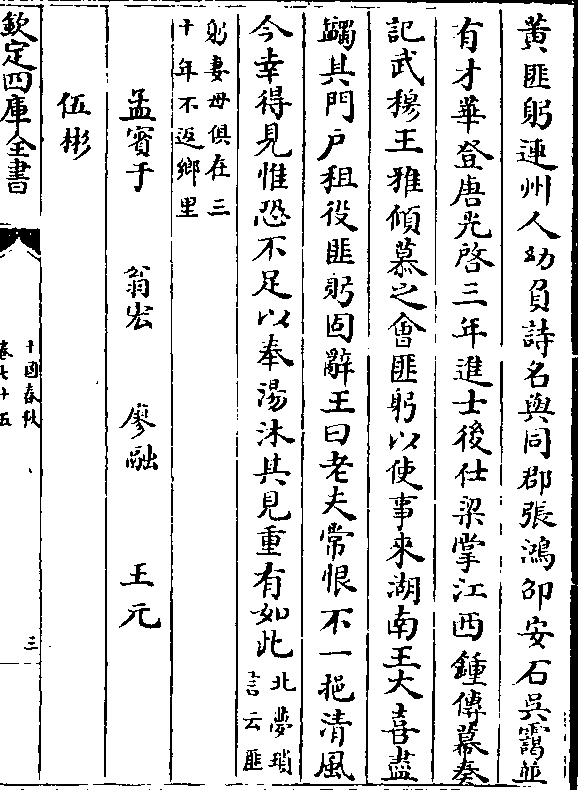 黃匪躬連州人幼負詩名與同郡張鴻邵安石吳靄並
有才華登唐光啓三年進士後仕梁掌江西鍾傳幕奏
記武穆王雅傾慕之會匪躬以使事來湖南王大喜盡
蠲其門户租役匪躬固辭王曰老夫常恨不一挹清風
今幸得見惟恐不足以奉湯沐其見重有如此北夢瑣
言云匪
躬妻母俱在三
十年不返鄉里
孟賓于 翁宏 廖融 王元
伍彬
欽定四庫全書
十國春秋
卷七十五
三